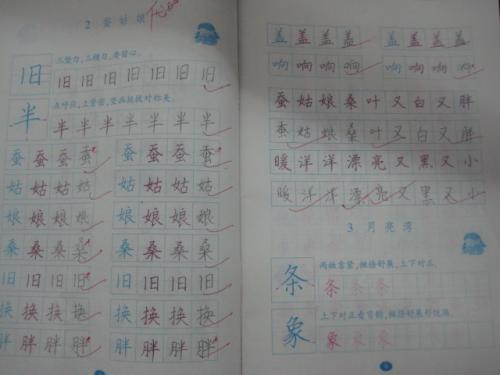 2 蚕姑娘 优
三竖匀,三横匀,要留心。
旧 旧 旧 旧 旧 旧 旧 旧
半 半 半 半 半 半 半 半
蚕 蚕 蚕 蚕 蚕 蚕 蚕 蚕
姑 姑 姑 姑 姑 姑 姑 姑
娘 娘 娘 娘 娘 娘 娘 娘
桑 桑 桑 桑 桑 桑 桑 桑
旧 旧 旧 旧 旧 旧 旧 旧
换 换 换 换 换 换 换 换
胖 胖 胖 胖 胖 胖 胖 胖
盖 盖 盖 盖 盖 盖 盖 盖
响 响 响 响 响 响 响 响
蚕姑娘桑叶又白又胖
蚕姑娘桑叶又白又胖
暖洋洋漂亮又黑又小
暖洋洋漂亮又黑又小
3 月亮湾
撇捺舒展,上下对正。
条 条 条 条
上下对正
象 象 象 象
6